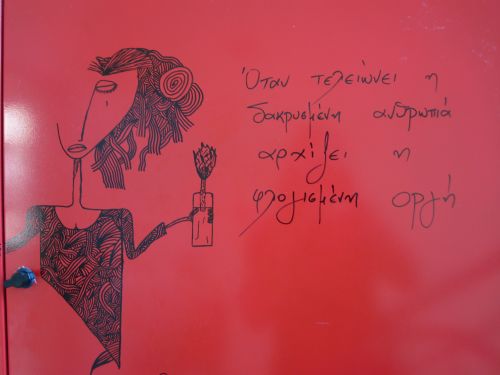 Όταν τελειώνει η
δακρυσμένη ανθρωπιά
αρχίζει η
φλογισμένη οργή